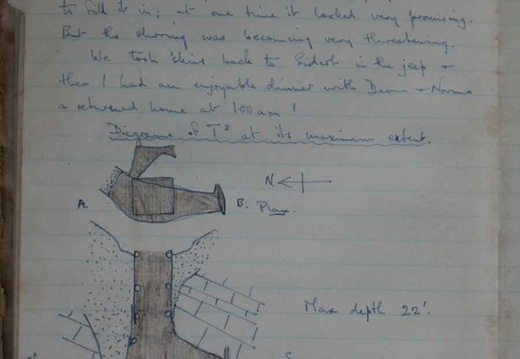 to fill it in; at one time it looked very promising.
But the shoring was becoming very threatening.
We took things back to Sidcot in the jeep &
then I had an enjoyable dinner with Dawn & Norma
& returned home at 1 00 am!
Diagrams of T² at its maximum extent.
N
A.
B.
Plan.
Max depth 22'.